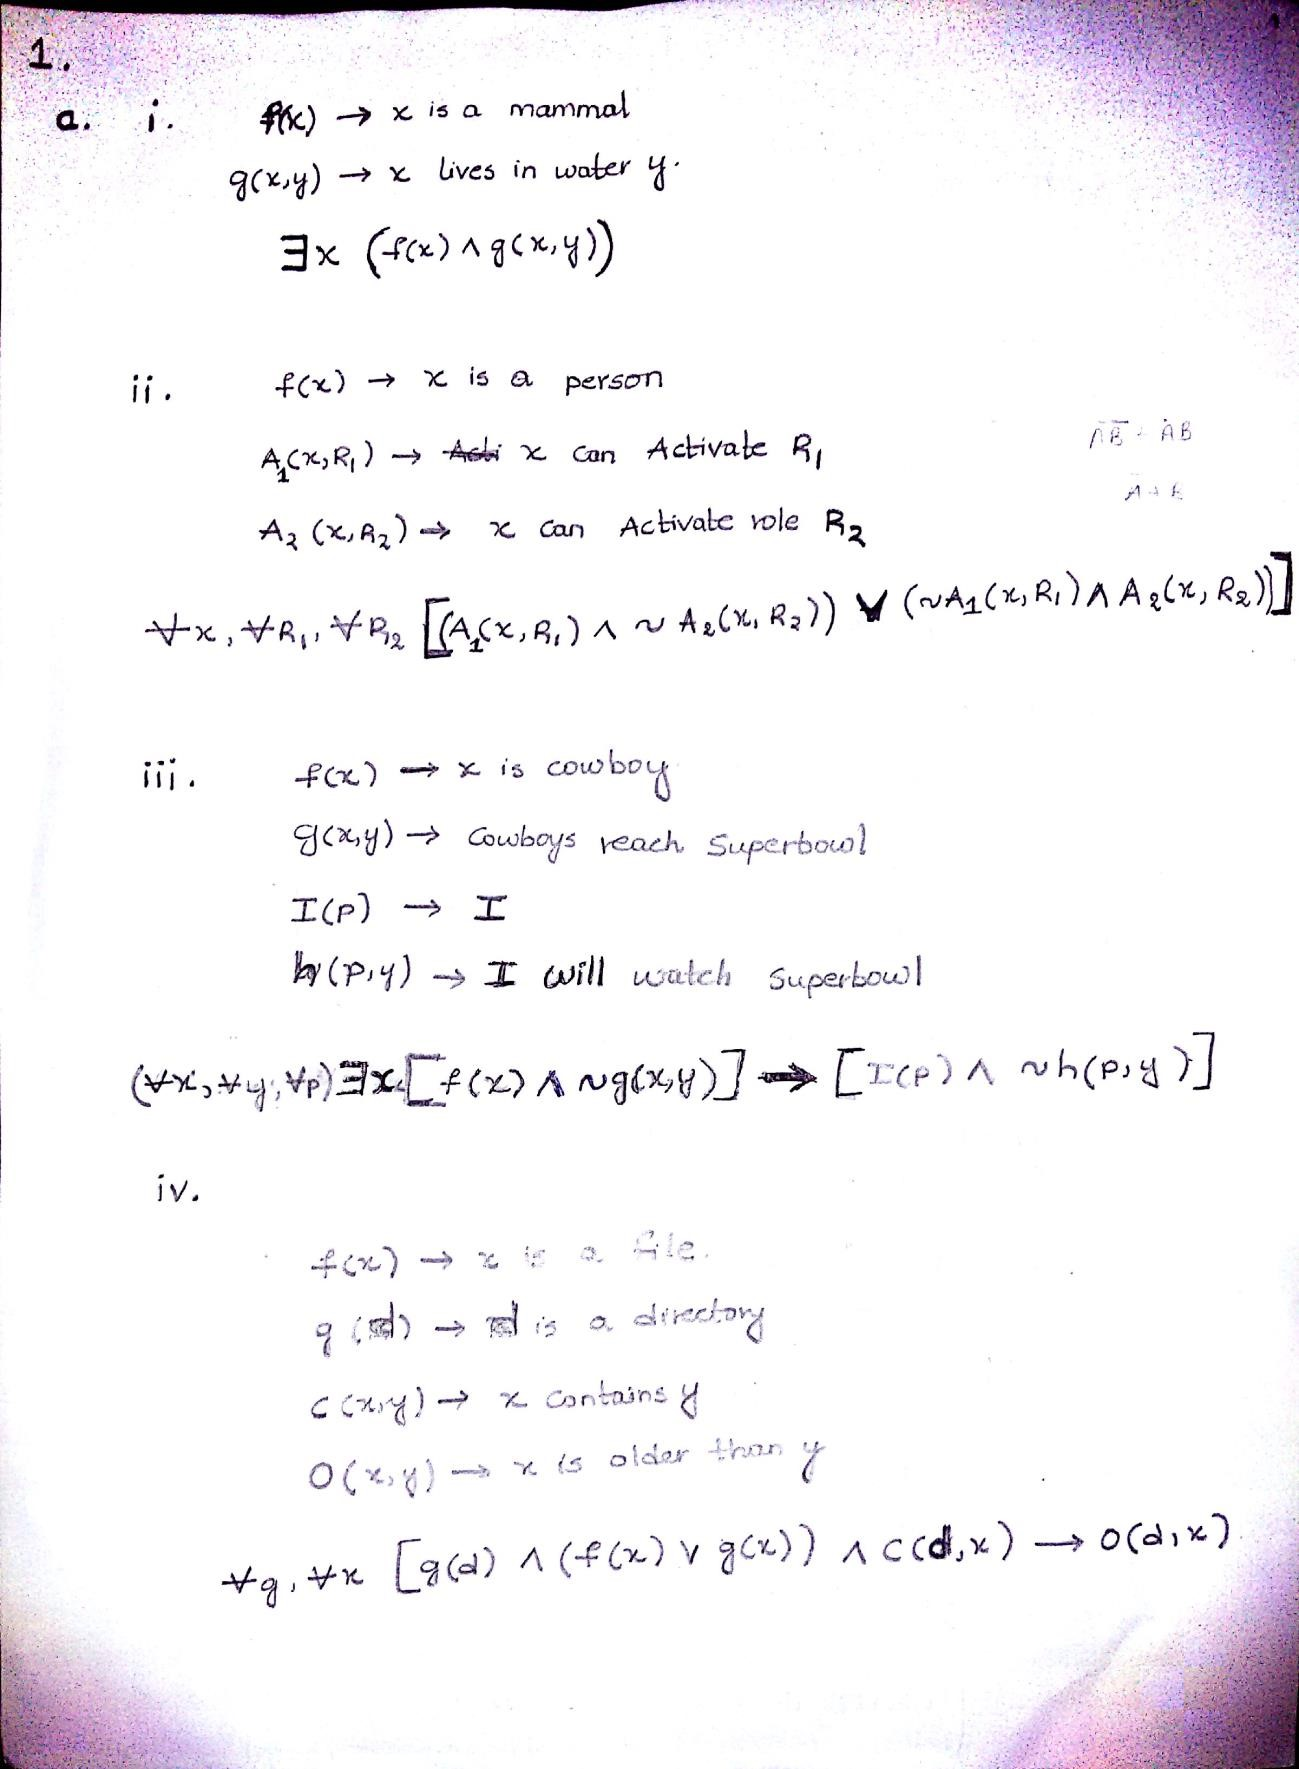 1.
a. i. f(x) → x is a mammal
g(x,y) → x lives in water y.
∃x (f(x) ∧ g(x,y))
ii. f(x) → x is a person
A₁(x,R₁) → Acti x can Activate R₁
A̅B̅ + AB
A₂(x,R₂) → x can Activate role R₂
∀x, ∀R₁, ∀R₂ [(A₁(x,R₁) ∧ ~A₂(x,R₂)) ∨ (~A₁(x,R₁) ∧ A₂(x,R₂))]
iii. f(x) → x is cowboy
g(x,y) → Cowboys reach Superbowl
I(p) → I
h(p,y) → I will watch Superbowl
(∀x, ∀y, ∀p) ∃x [f(x) ∧ ~g(x,y)] → [I(p) ∧ ~h(p,y)]
iv.
f(x) → x is a file.
g(d) → d is a directory
C(x,y) → x contains y
O(x,y) → x is older than y
∀g, ∀x [g(d) ∧ (f(x) ∨ g(x)) ∧ C(d,x) → O(d,x)